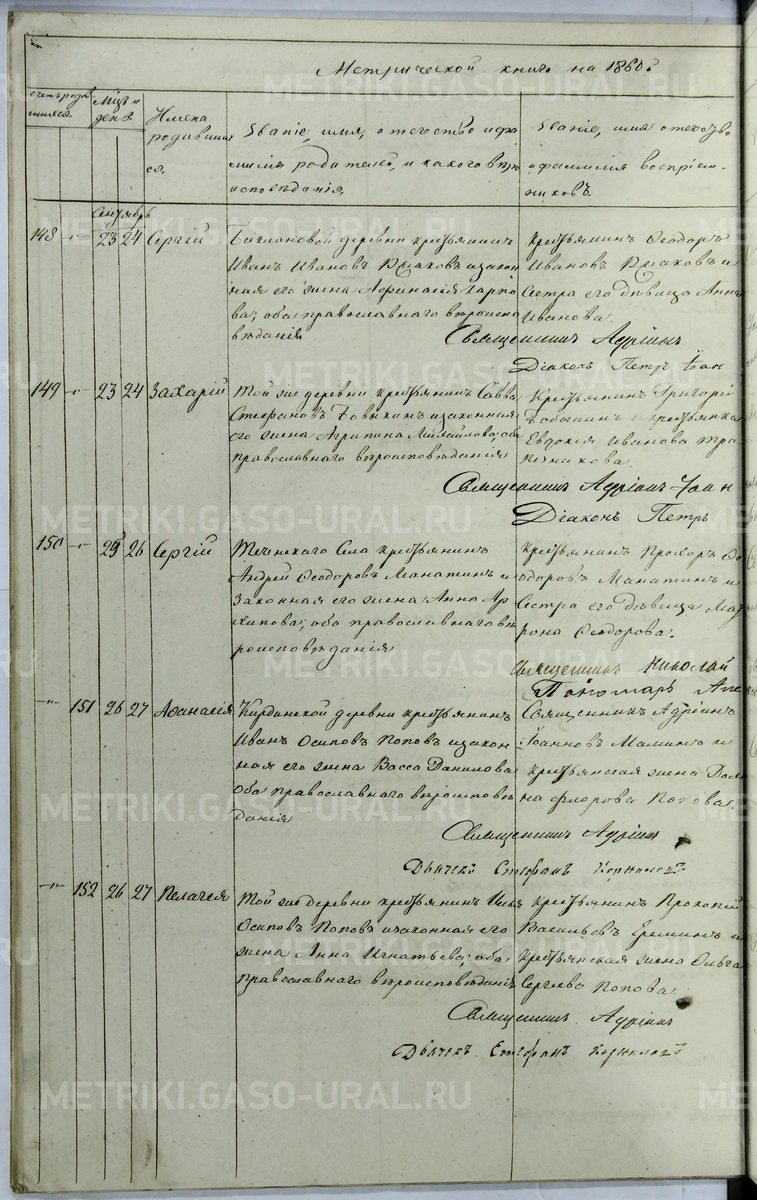 Метрической книги на 1860й
счетъ роди
вшихся.
Мцъ и
день.
Имена
родивших
ся.
Званіе, имя, отечество и фа
милія родителей, и какого вѣро
исповѣданія.
Званіе, имя отечество
и фамилія воспріем-
никовъ.
Сентябрь
148 23 24 Сергій
деревни крестьянинъ
Иванъ Ивановъ и закон
ная его жена Афанасія Карпо
ва; оба православнаго вѣроиспо
вѣданія
крестьянинъ Ѳеодоръ
Ивановъ и
Сестра его дѣвица Анна
Иванова.
Священникъ Адріанъ
Діаконъ Петръ
149 23 24 Захарій
Той же деревни крестьянинъ Савва
Стефановъ и законная
его жена Агрипина Михайлова; оба
православнаго вѣроисповѣданія
Крестьянинъ Григорій
и крестьянка
Евдокія Иванова
Священникъ Адріанъ Іоан
Діаконъ Петръ
150 25 26 Сергій
Теченскаго Села крестьянинъ
Андрей Ѳеодоровъ Манатинъ и
Законная его жена Анна Ар
хипова; оба православнаго вѣ
роисповѣданія
крестьянинъ Прохоръ Ѳе
одоровъ Манатинъ и
Сестра его дѣвица Мат
рона Ѳеодорова.
Священникъ Николай
Пономарь
151 26 27 Аѳанасія
Кирдинской деревни крестьянинъ
Иванъ Осиповъ Поповъ и закон
ная его жена Васса Данилова
Оба православнаго вѣроисповѣ
данія
Священникъ Адріанъ
Іоанновъ Маминъ и
крестьянская жена Дом
на Флорова Попова.
Священникъ Адріанъ
Дьячекъ Стефанъ
152 26 27 Пелагея
Той же деревни крестьянинъ Илья
Осиповъ Поповъ и законная его
жена Анна Игнатьева; оба
православнаго вѣроисповѣданія
крестьянинъ Прокопій
Васильевъ Ереминъ и
крестьянская жена Ольга
Сергіева Попова.
Священникъ Адріанъ
Дьячекъ Стефанъ
METRIKI.GASO-URAL.RU